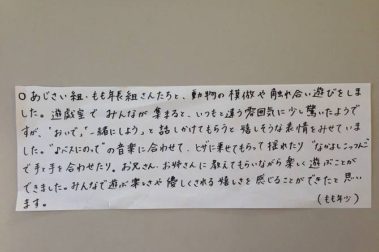 ○あじさい組・もも年長組さんたちと、動物の模倣や触れ合い遊びをしま
した。遊戯室でみんなが集まると、いつもと違う雰囲気に少し驚いたようで
すが、"おいで""一緒にしよう"と話しかけてもらうと嬉しそうな表情をみせてい
ました。の音楽に合わせて、ヒザに乗せてもらって揺れたり"なかよしこっつんこ"
で手と手を合わせたり。お兄さん、お姉さんに教えてもらいながら楽しく遊ぶことが
できました。みんなで遊ぶ楽しさや優しくされる嬉しさを感じることができたと思い
ます。
(もも年少)